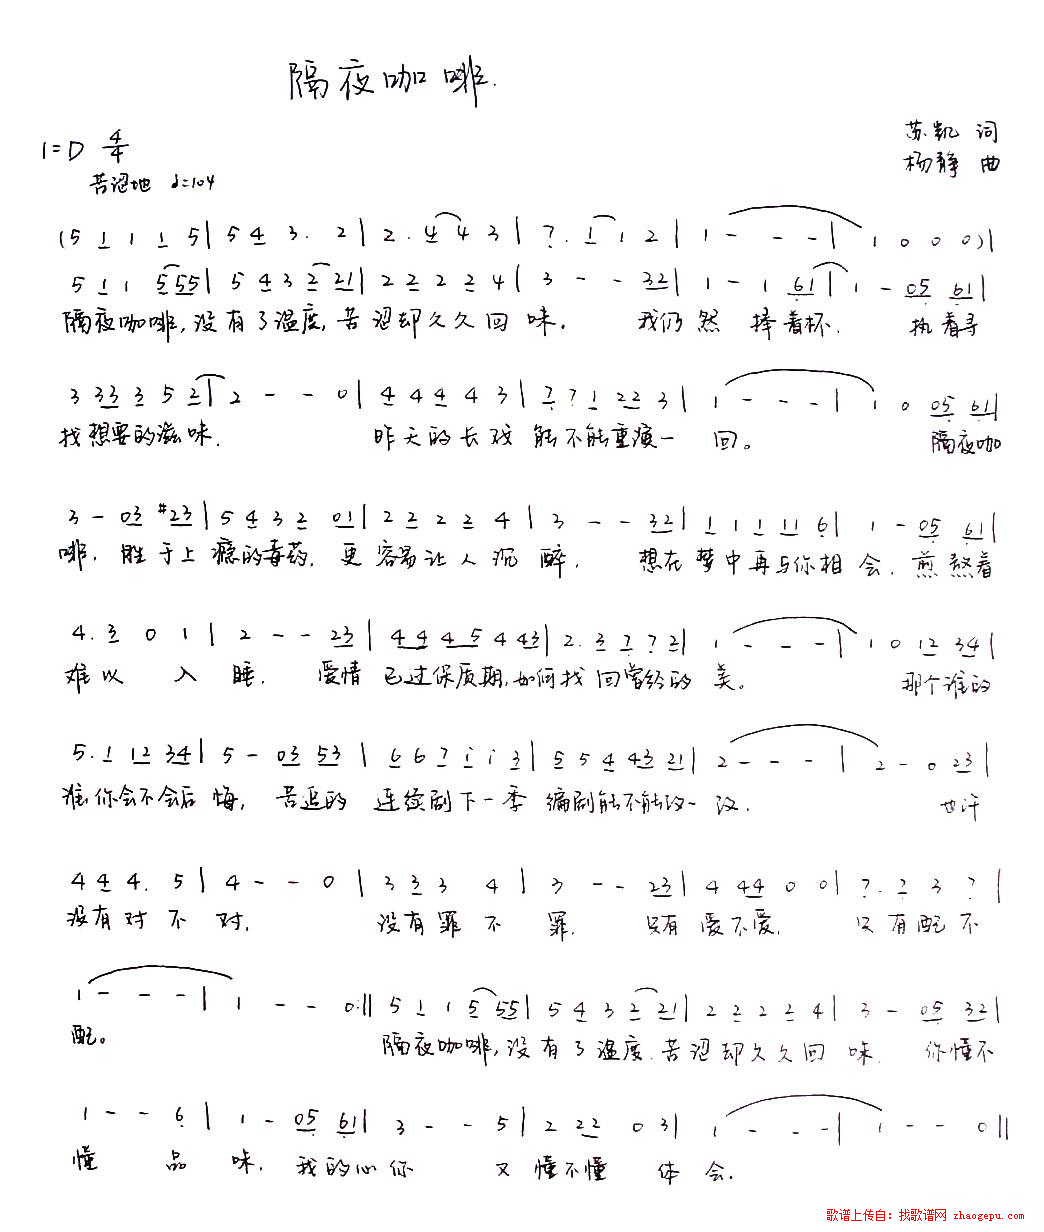 隔夜咖啡.
苏凯 词
1=D 4/4
杨静 曲
苦涩地 ♩=104
(5 1 1 1 5| 5 4 3. 2| 2. 4 4 3| 7. 1 1 2| 1 - - -| 1 0 0 0)|
5 1 1 5 5 5| 5 4 3 2 2 1| 2 2 2 2 4| 3 - - 3 2| 1 - 1 6 1| 1 - 0 5 6 1|
隔夜咖啡,没有了温度,苦涩却久久回味. 我仍然捧着杯. 执着寻
3 3 3 3 5 2| 2 - - 0| 4 4 4 4 3| 7 7 1 2 2 3| 1 - - -| 1 0 0 5 6 1|
找想要的滋味. 昨天的长戏 能不能重演一回。 隔夜咖
3 - 0 3 #2 3| 5 4 3 2 0 1| 2 2 2 2 4| 3 - - 3 2| 1 1 1 1 1 6| 1 - 0 5 6 1|
啡. 胜于上瘾的毒药. 更容易让人沉醉. 想在梦中再与你相会. 煎熬着
4. 3 0 1| 2 - - 2 3| 4 4 4 5 4 4 3| 2. 3 7 7 2| 1 - - -| 1 0 1 2 3 4|
难以入睡. 爱情已过保质期,如何找回曾经的美。 那个谁的
5. 1 1 2 3 4| 5 - 0 3 5 3| 6 6 7 i i 3| 5 5 4 4 3 2 1| 2 - - -| 2 - 0 2 3|
谁你会不会后悔, 苦追的 连续剧下一季 编剧能不能改一改. 也许
4 4 4. 5| 4 - - 0| 3 3 3 4| 3 - - 2 3| 4 4 4 0 0| 7. 7 3 7|
没有对不对, 没有罪不罪, 只有爱不爱, 只有配不
1 - - -| 1 - - 0:|| 5 1 1 5 5 5| 5 4 3 2 2 1| 2 2 2 2 4| 3 - 0 5 3 2|
配。 隔夜咖啡,没有了温度.苦涩却久久回味. 你懂不
1 - - 6| 1 - 0 5 6 1| 3 - - 5| 2 2 2 0 3| 1 - - -| 1 - - 0||
懂品味, 我的心你又懂不懂体会.
歌谱上传自：找歌谱网 zhaogepu.com